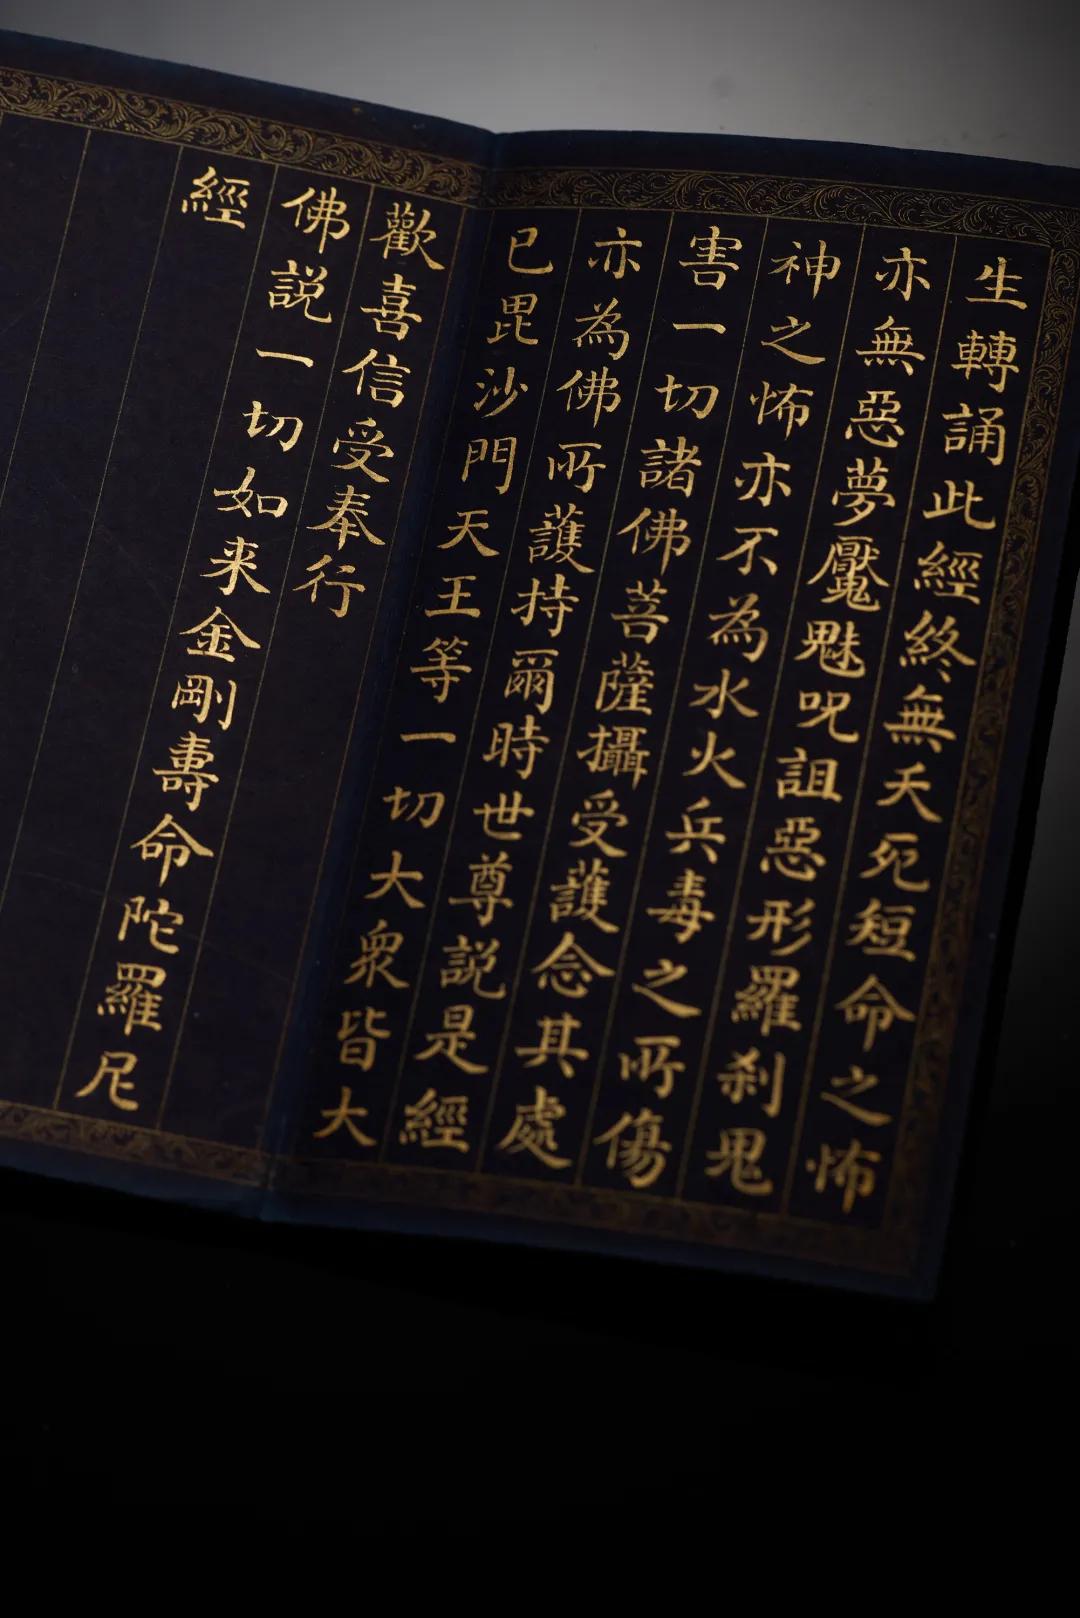 生轉誦此經終無夭死短命之怖
亦無惡夢魘魅呪詛惡形羅刹鬼
神之怖亦不為水火兵毒之所傷
害一切諸佛菩薩攝受護念其處
亦為佛所護持爾時世尊説是經
已毘沙門天王等一切大衆皆大
歡喜信受奉行
佛説一切如来金剛壽命陀羅尼
經